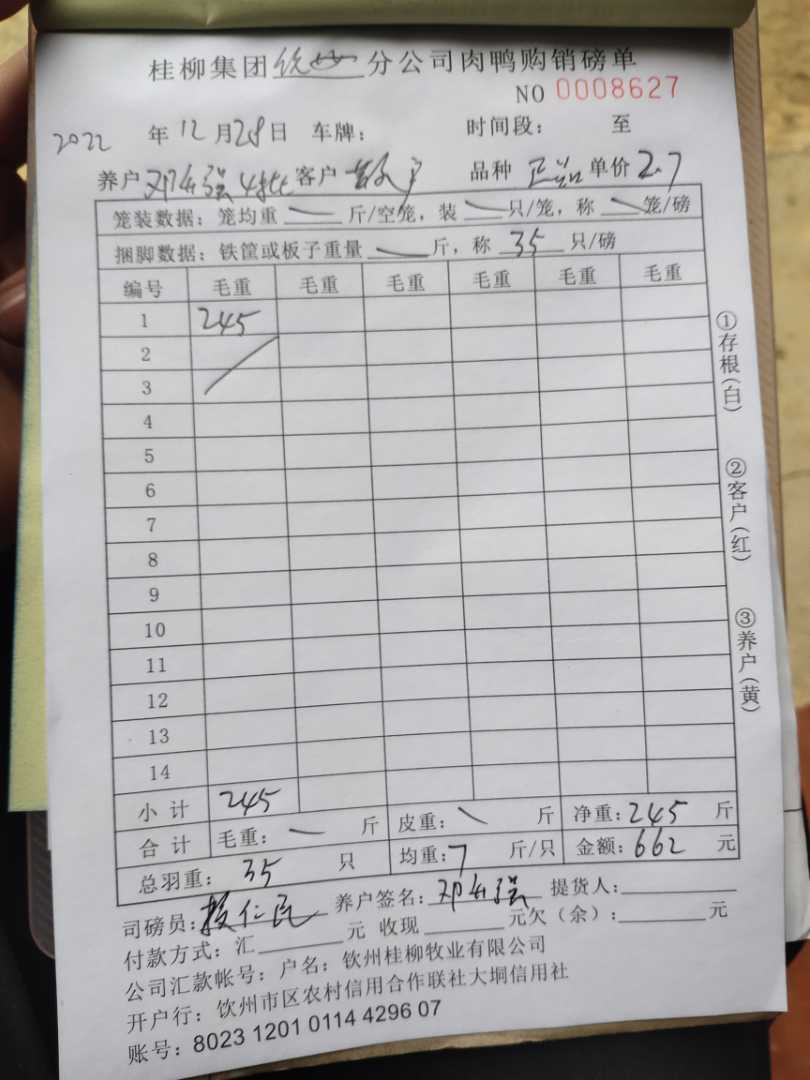 桂柳集团 分公司肉鸭购销磅单
NO 0008627
2022 年 12 月 28 日 车牌： 时间段： 至
养户 邓 强 4批 客户 散户 品种 正品 单价 2.7
笼装数据：笼均重 斤/空笼，装 只/笼，称 笼/磅
捆脚数据：铁筐或板子重量 斤，称 35 只/磅
编号 毛重 毛重 毛重 毛重 毛重 毛重
1 245
2
3
4
5
6
7
8
9
10
11
12
13
14
小 计 245
合 计 毛重： 斤 皮重： 斤 净重：245 斤
总羽重： 35 只 均重：7 斤/只 金额：662 元
司磅员： 仁民 养户签名：邓 强 提货人：
付款方式：汇 元 收现 元欠（余）： 元
公司汇款帐号：户名：钦州桂柳牧业有限公司
开户行：饮州市区农村信用合作联社大垌信用社
账号：8023 1201 0114 4296 07
①存根（白）
②客户（红）
③养户（黄）